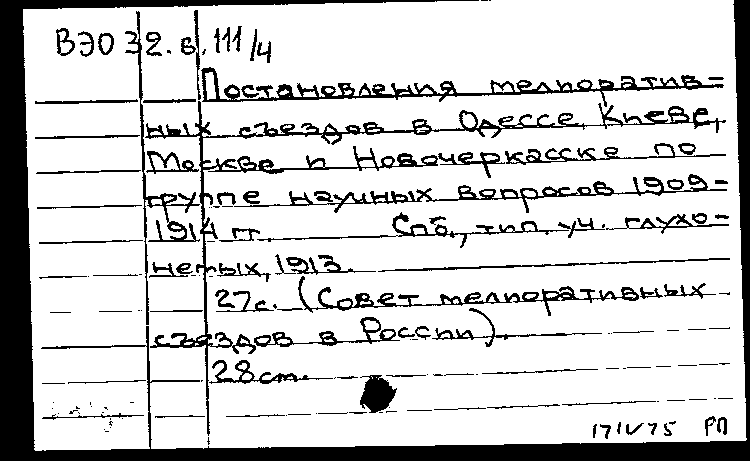 ВЭО 32.в.111/4
Постановления мелиоратив-
ных съездов в Одессе, Киеве,
Москве и Новочеркасске по
группе научных вопросов 1909-
1914 гг. Спб., тип. уч. глухо-
немых, 1913.
27с. (Совет мелиоративных
съездов в России).
28 cm.
17 IV 75 РП